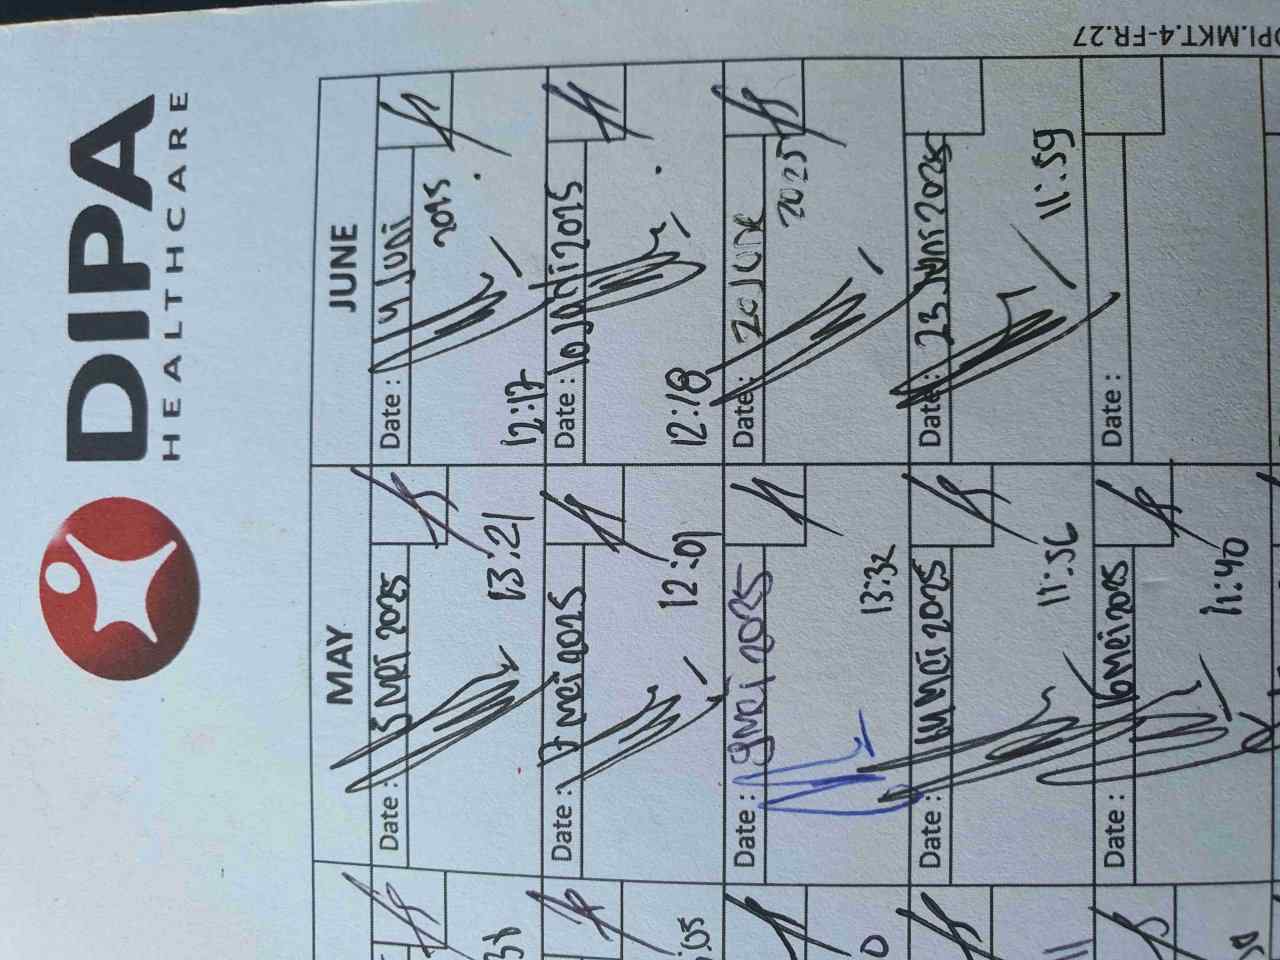 DIPA
HEALTHCARE
OPI.MKT.4-FR.27
MAY
JUNE
Date : 3 Mei 2025
13:21
Date : 4 Juni
2025
12:17
Date : 7 Mei 2025
12:01
Date : 10 Juni 2025
12:18
Date : 9 Mei 2025
13:32
Date : 20 June
2025
Date : 14 Mei 2025
11:56
Date : 23 Juni 2025
11:59
Date : 16 Mei 2025
11:40
Date :